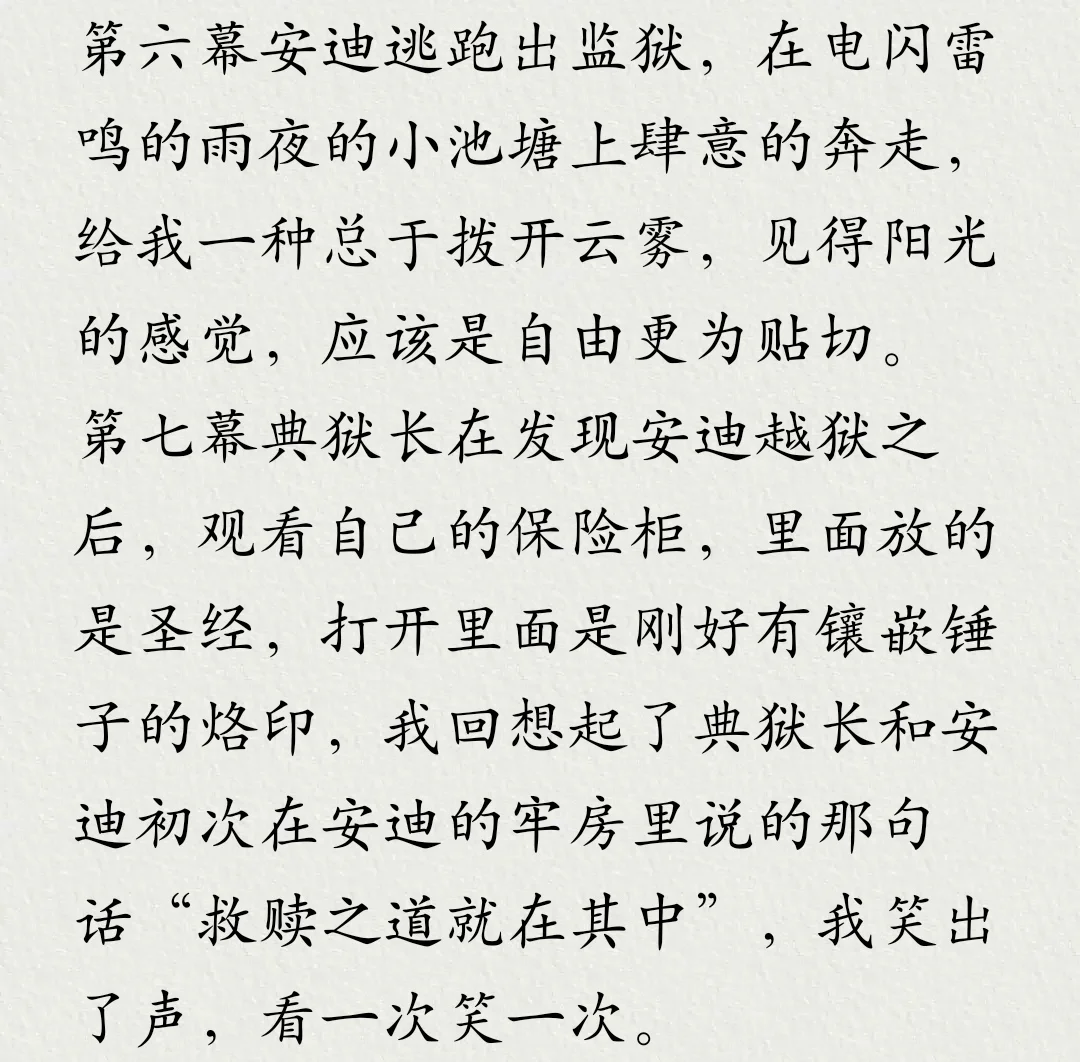 第六幕安迪逃跑出监狱，在电闪雷
鸣的雨夜的小池塘上肆意的奔走，
给我一种总于拨开云雾，见得阳光
的感觉，应该是自由更为贴切。
第七幕典狱长在发现安迪越狱之
后，观看自己的保险柜，里面放的
是圣经，打开里面是刚好有镶嵌锤
子的烙印，我回想起了典狱长和安
迪初次在安迪的牢房里说的那句
话“救赎之道就在其中”，我笑出
了声，看一次笑一次。